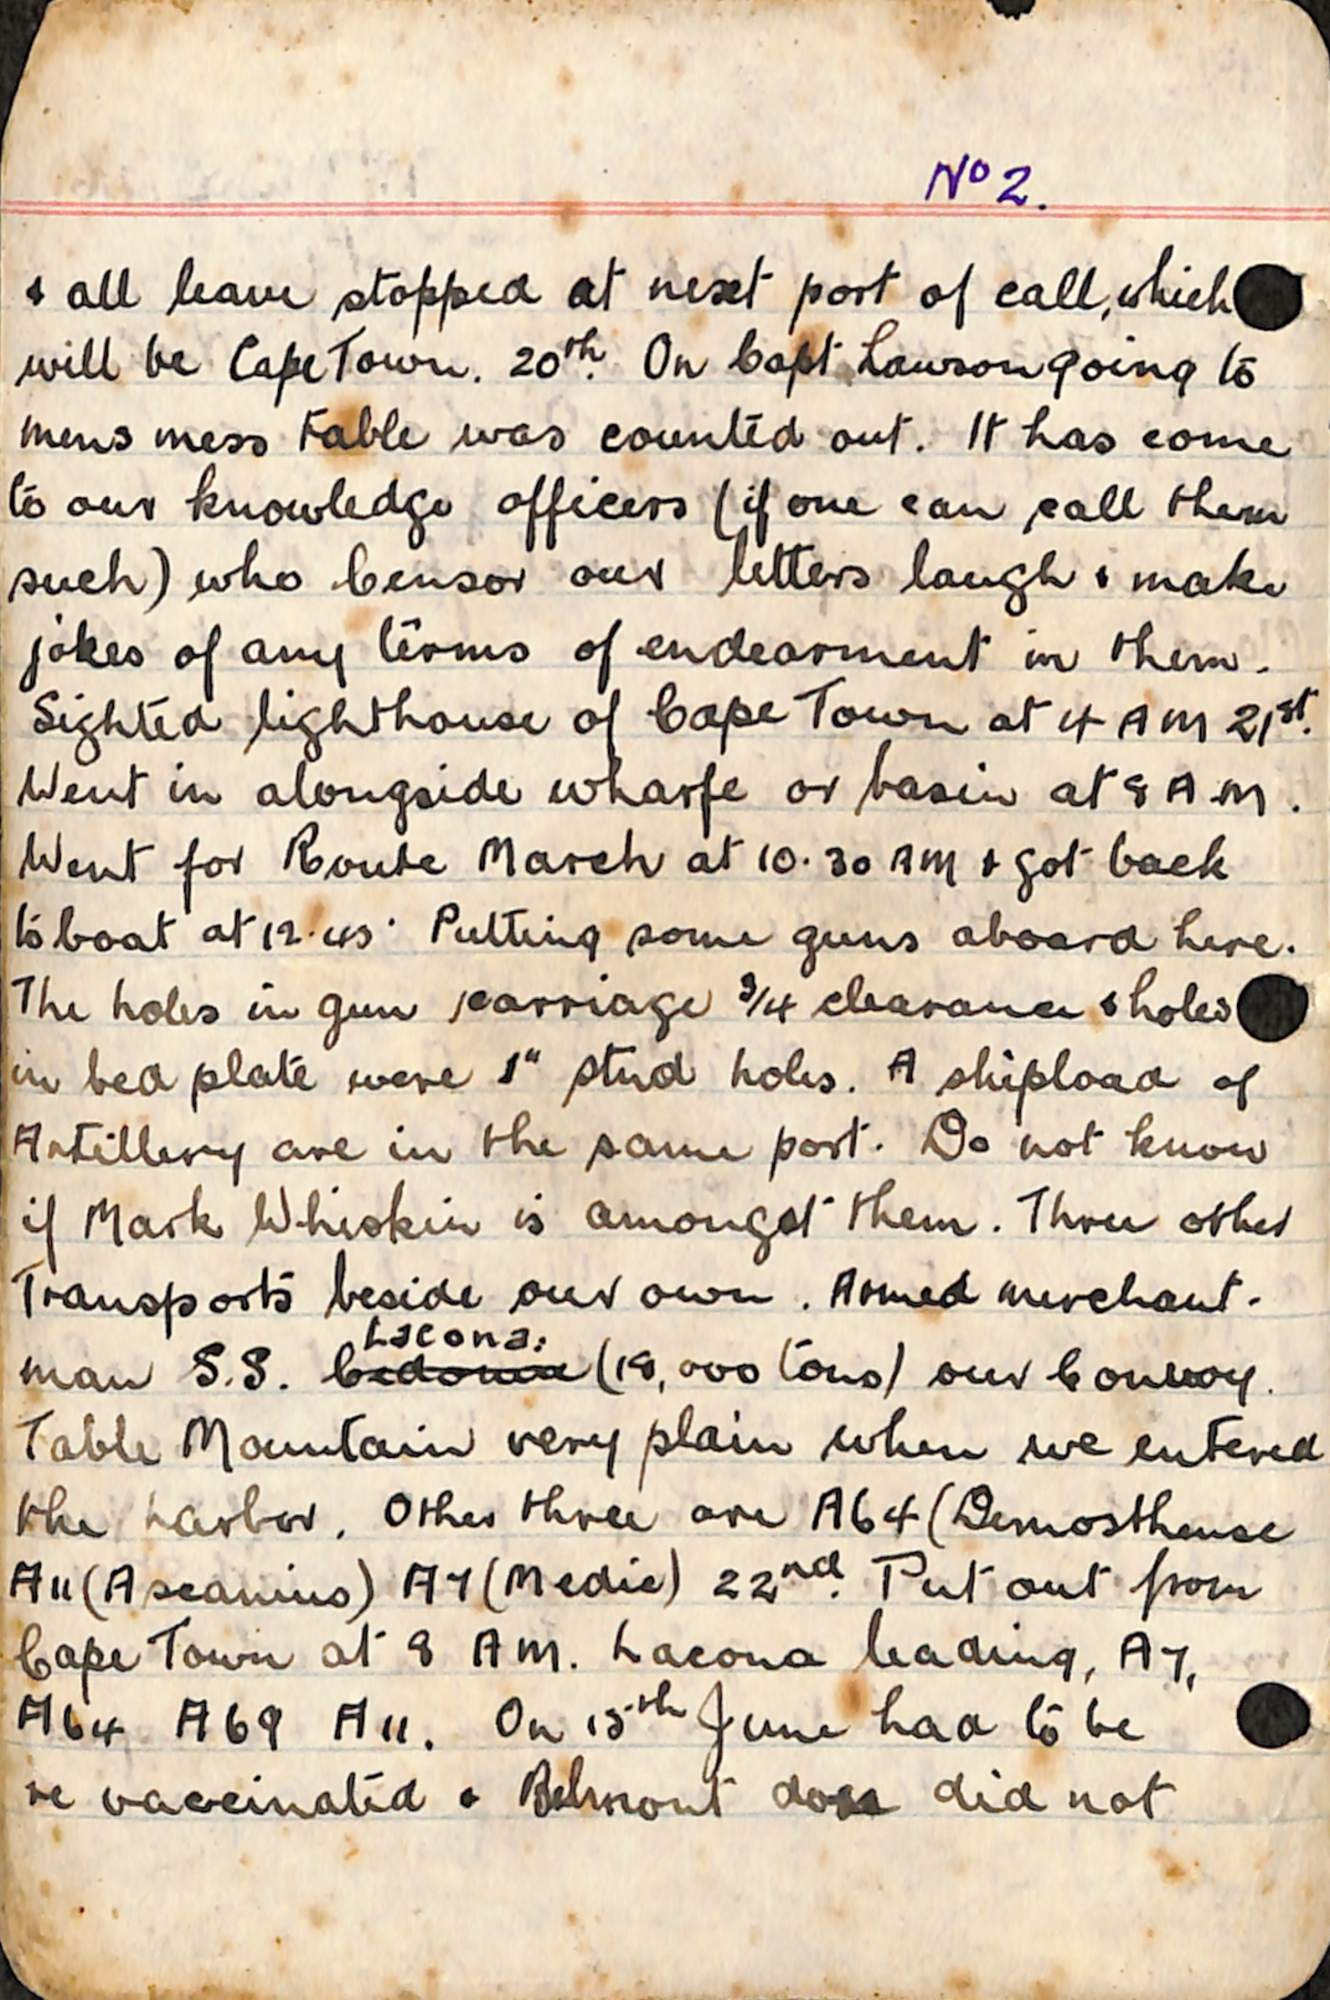 No 2.
& all leave stopped at next port of call, which
will be Cape Town. 20th. On Capt Lawson going to
mens mess table was counted out. It has come
to our knowledge officers (if one can call them
such) who Censor our letters laugh & make
jokes of any terms of endearment in them.
Sighted lighthouse of Cape Town at 4 AM 21st.
Went in alongside wharfe or basin at 8 AM.
Went for Route March at 10.30 AM & got back
to boat at 12.45. Putting some guns aboard here.
The holes in gun carriage 3/4 clearance & holes
in bed plate were 1" stud holes. A shipload of
Artillery are in the same port. Do not know
if Mark Whiskin is amongst them. Three other
Transports beside our own. Armed merchant-
Lacona:
man S.S. (18,000 tons) our Convoy.
Table Mountain very plain when we entered
the harbor. Other three are A64 (Demosthense
A11 (Ascanius) A7 (Medic) 22nd. Put out from
Cape Town at 8 AM. Lacona leading, A7,
A64 A69 A11. On 15th June had to be
re vaccinated & Belmont did not